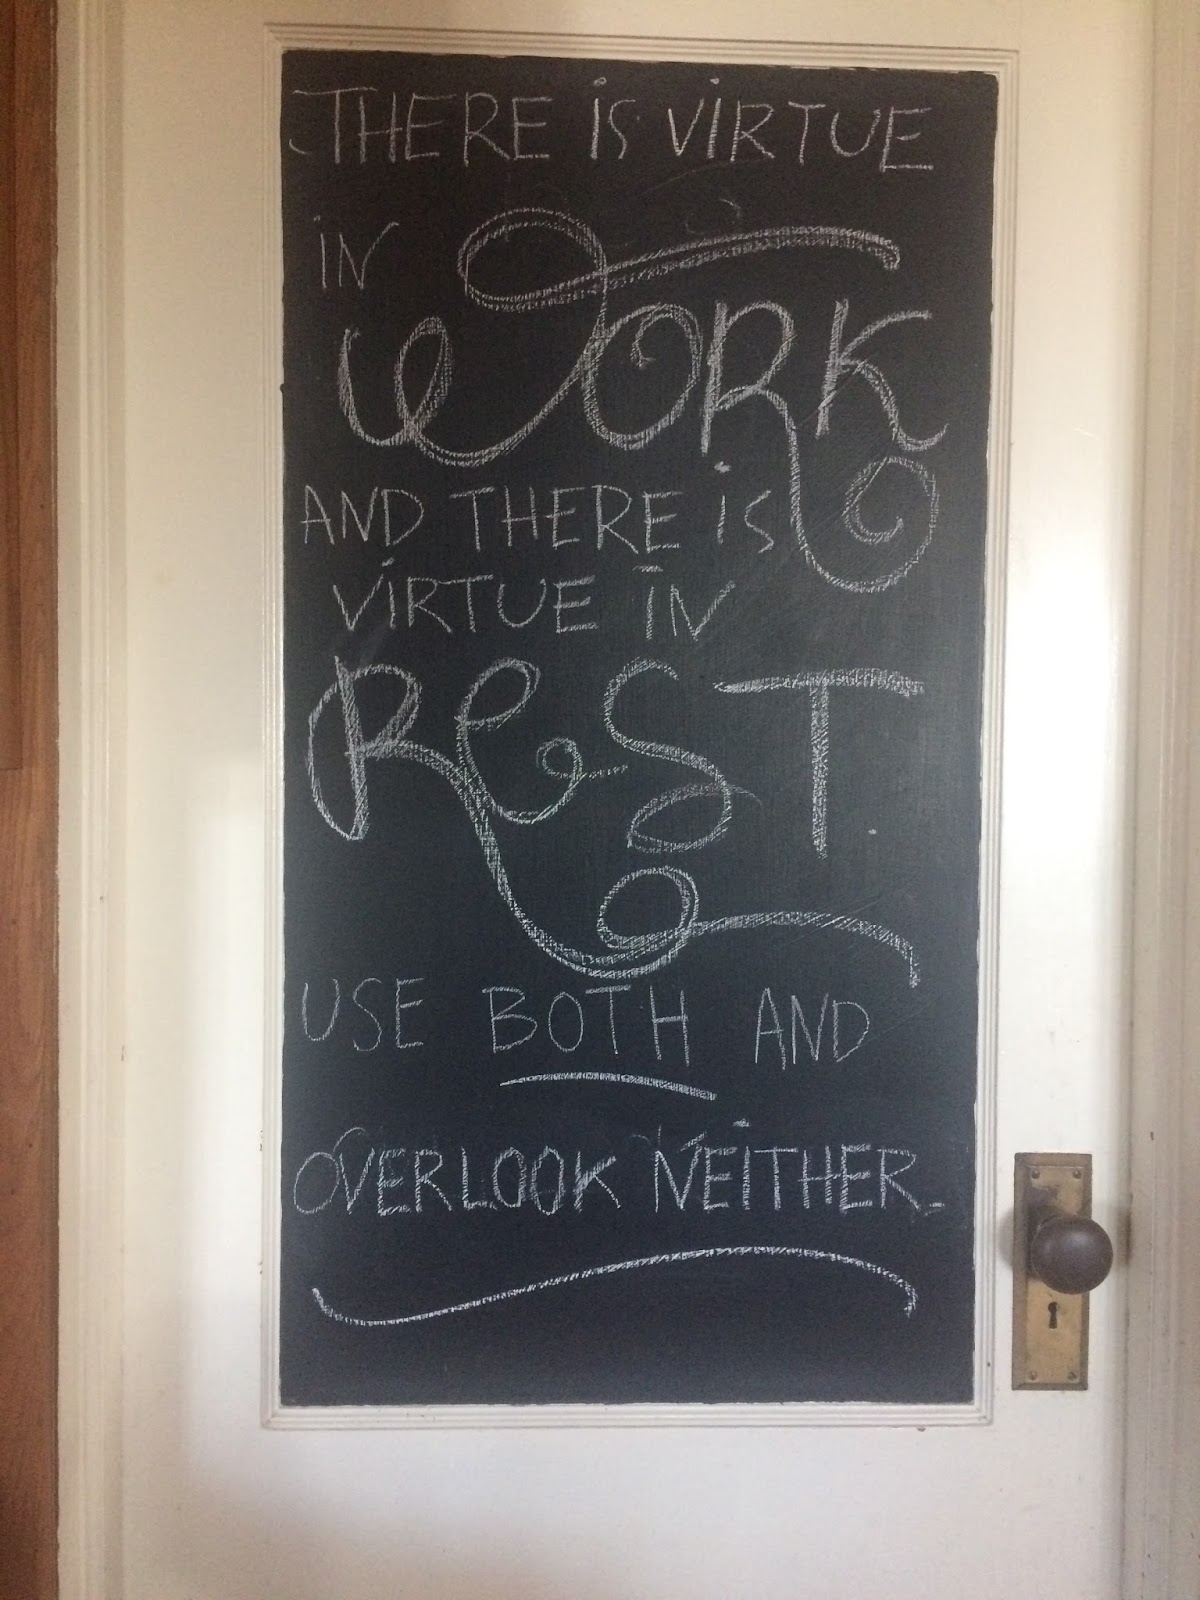 THERE iS ViRTUE
iN WORK
AND THERE iS
ViRTUE iN
ReST.
USE BOTH AND
OVERLOOK NEiTHER.